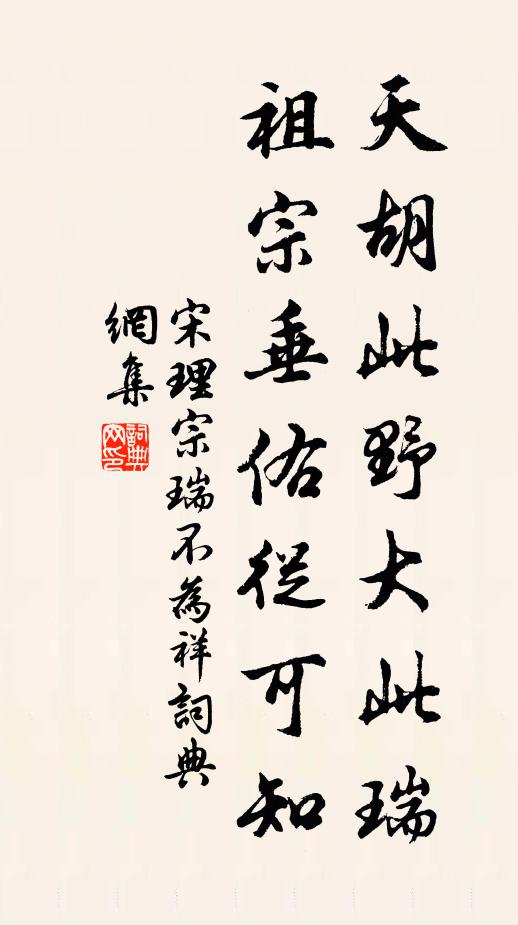 天胡此野大此瑞
祖宗垂佑從可知
宋理宗瑞不為祥詞典
網集
詞典網印